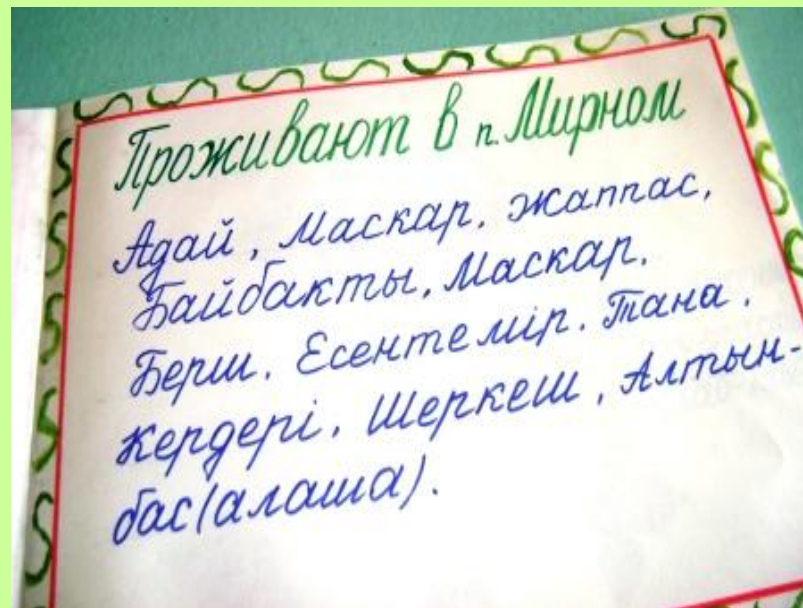 Проживают в п. Мирном
Адай, Маскар, жаппас,
Байбакты, Маскар,
Берш. Есентемір. Тана.
Кердері. Шеркеш, Алтын-
бас(алаша).